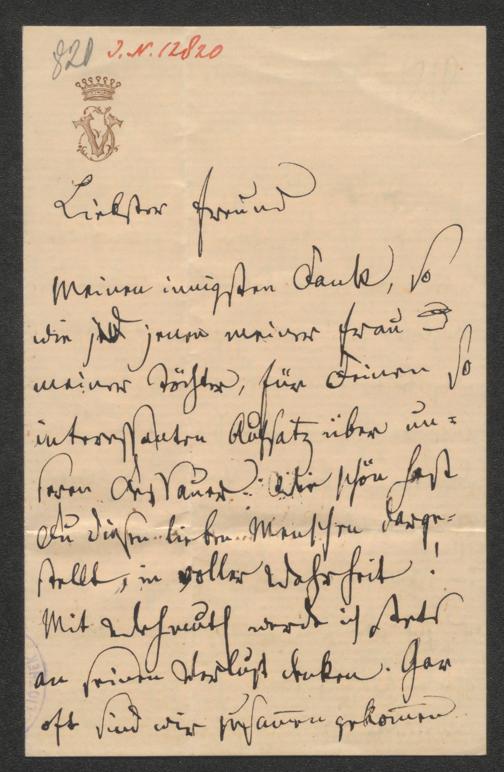 820 I.N. 12820
Liebster Freund
Meinen innigsten Dank, so
wie jenen meiner Frau &
meiner Töchter, für Deinen so
interessanten Aufsatz über un=
seren Dessauer. Wie schön hast
Du diesen lieben Menschen darge=
stellt, in voller Wahrheit!
Mit Wehmuth werde ich stets
an seinen Verlust denken. Gar
oft sind wir zusam̄en gekom̄en